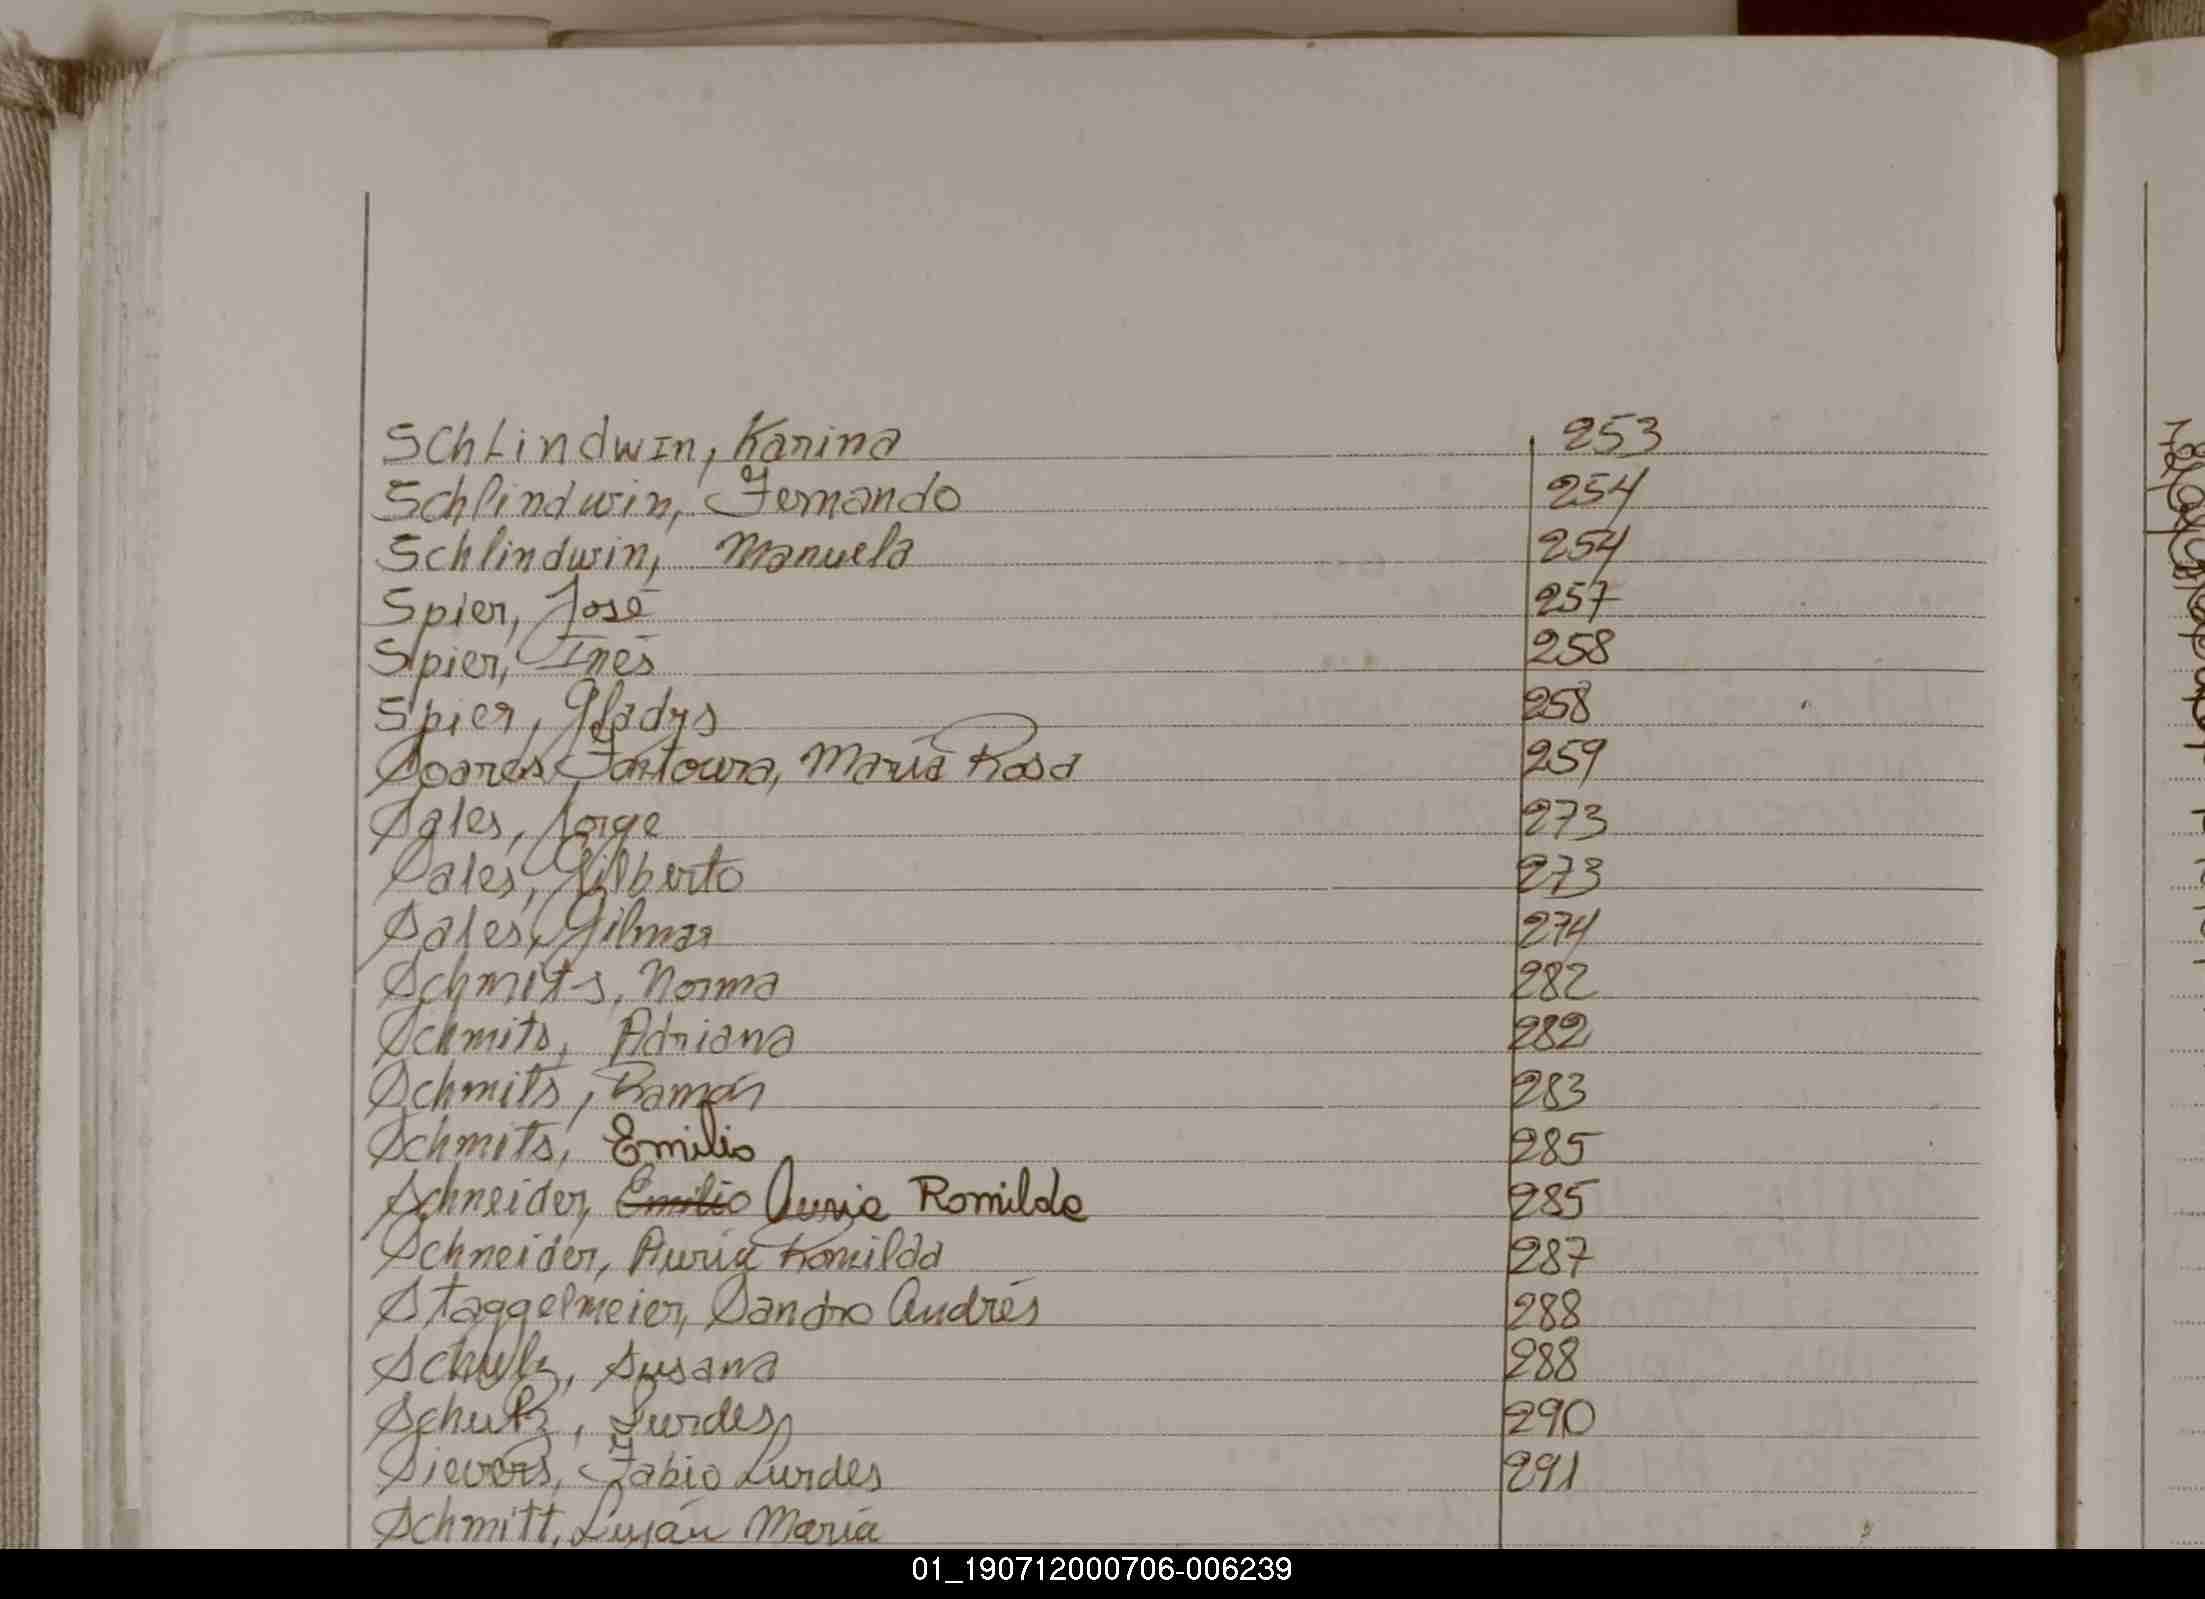 Schlindwin, Karina 253
Schlindwin, Fernando 254
Schlindwin, Manuela 254
Spier, José 257
Spier, Inés 258
Spier, Gladys 258
Soares Fontoura, María Rosa 259
Sales, Jorge 273
Sales, Gilberto 273
Sales, Gilmar 274
Schmits, Norma 282
Schmits, Adriana 282
Schmits, Ramón 283
Schmits, Emilio 285
Schneider, Emilio Auria Romilda 285
Schneider, Auria Romilda 287
Staggelmeier, Sandro Andrés 288
Schulz, Susana 288
Schulz, Lurdes 290
Sievers, Fabio Lurdes 291
Schmitt, Luján María
01_190712000706-006239